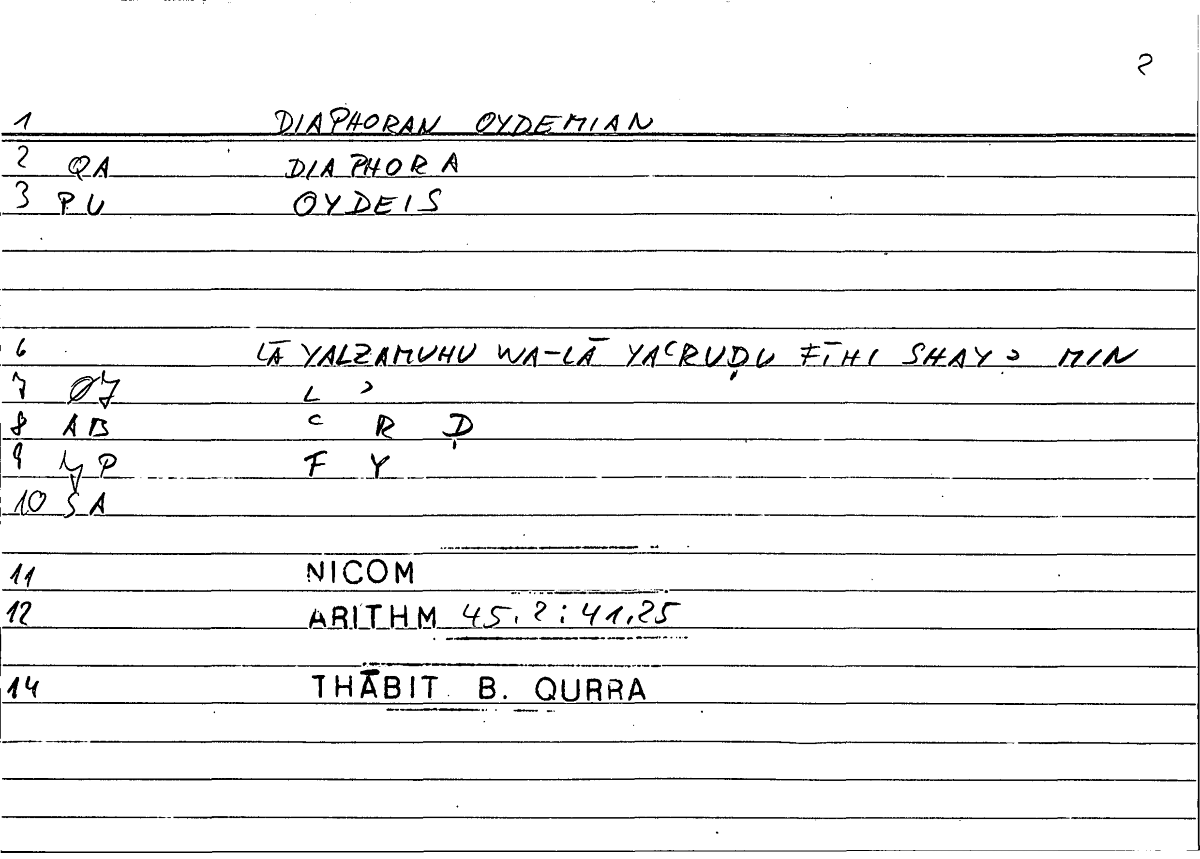 2
1 DIAPHORAN OYDEMIAN
2 QA DIAPHORA
3 PU OYDEIS
6 LĀ YALZAMUHU WA-LĀ YAᶜRUḌU FĪHI SHAYʾ MIN
7 Ø7 L ʾ
8 AB ᶜ R Ḍ
9 P F Y
10 ŠA
11 NICOM
12 ARITHM 45.2:41.25
14 THĀBIT B. QURRA